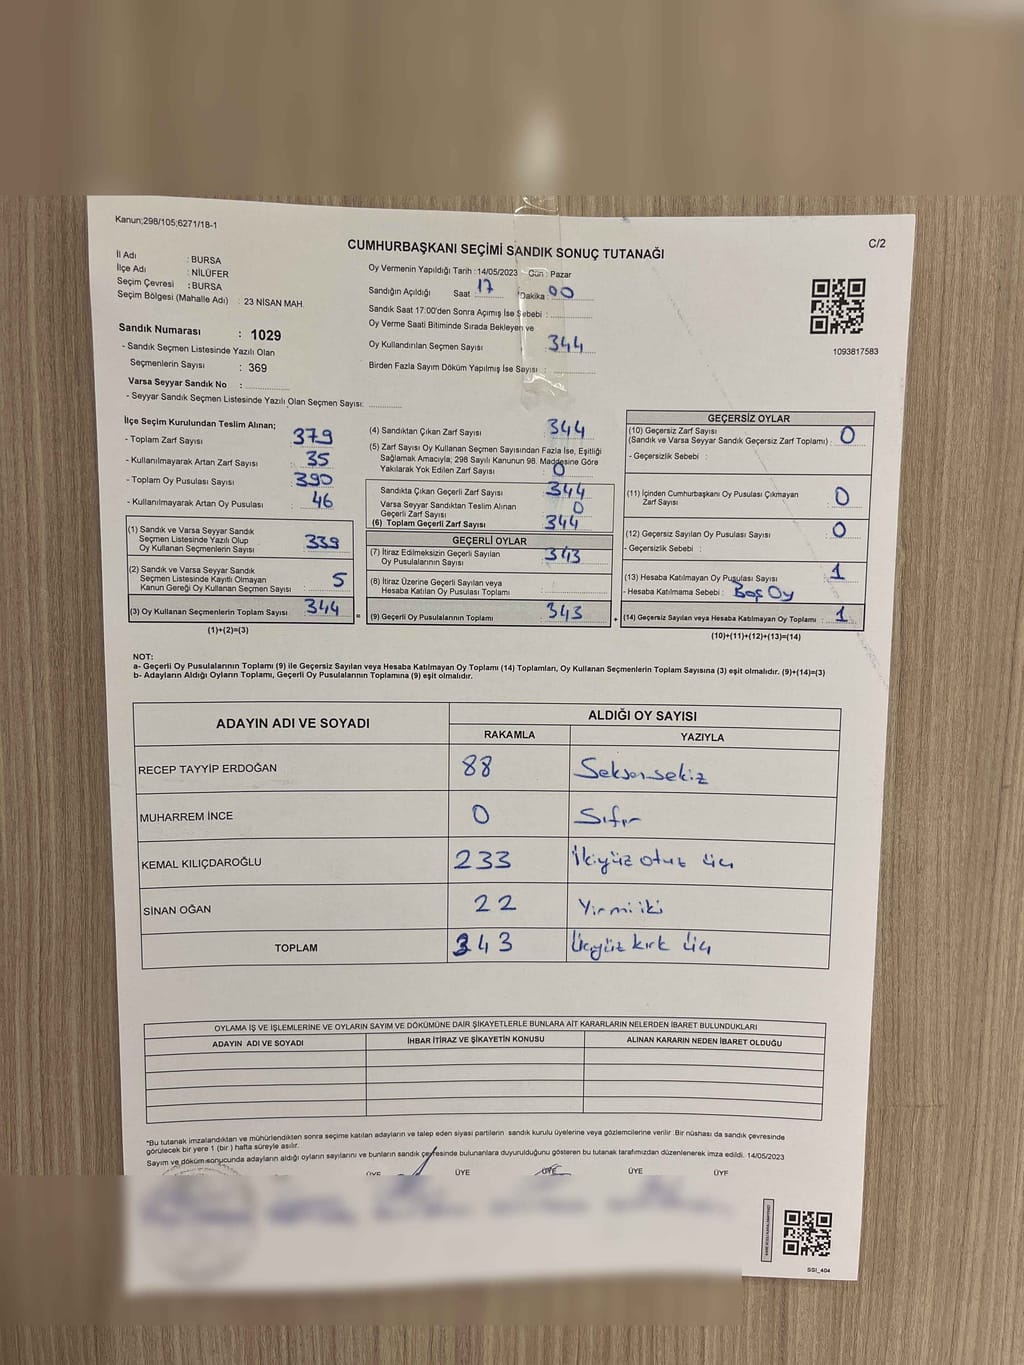 Kanun;298/105;6271/18-1
C/2
CUMHURBAŞKANI SEÇİMİ SANDIK SONUÇ TUTANAĞI
İl Adı : BURSA
İlçe Adı : NİLÜFER
Seçim Çevresi : BURSA
Seçim Bölgesi (Mahalle Adı) : 23 NİSAN MAH.
Sandık Numarası : 1029
- Sandık Seçmen Listesinde Yazılı Olan
Seçmenlerin Sayısı : 369
Varsa Seyyar Sandık No :
- Seyyar Sandık Seçmen Listesinde Yazılı Olan Seçmen Sayısı:
Oy Vermenin Yapıldığı Tarih :14/05/2023 Gün : Pazar
Sandığın Açıldığı Saat 17 Dakika 00
Sandık Saat 17:00'den Sonra Açımış İse Sebebi :
Oy Verme Saati Bitiminde Sırada Bekleyen ve
Oy Kullandırılan Seçmen Sayısı 344
Birden Fazla Sayım Döküm Yapılmış İse Sayısı :
1093817583
İlçe Seçim Kurulundan Teslim Alınan;
- Toplam Zarf Sayısı : 379
- Kullanılmayarak Artan Zarf Sayısı : 35
- Toplam Oy Pusulası Sayısı : 390
- Kullanılmayarak Artan Oy Pusulası : 46
(1) Sandık ve Varsa Seyyar Sandık
Seçmen Listesinde Yazılı Olup
Oy Kullanan Seçmenlerin Sayısı 339
(2) Sandık ve Varsa Seyyar Sandık
Seçmen Listesinde Kayıtlı Olmayan
Kanun Gereği Oy Kullanan Seçmen Sayısı 5
(3) Oy Kullanan Seçmenlerin Toplam Sayısı 344
(1)+(2)=(3)
=
(4) Sandıktan Çıkan Zarf Sayısı 344
(5) Zarf Sayısı Oy Kullanan Seçmen Sayısından Fazla İse, Eşitliği
Sağlamak Amacıyla; 298 Sayılı Kanunun 98. Maddesine Göre
Yakılarak Yok Edilen Zarf Sayısı 0
Sandıkta Çıkan Geçerli Zarf Sayısı 344
Varsa Seyyar Sandıktan Teslim Alınan
Geçerli Zarf Sayısı 0
(6) Toplam Geçerli Zarf Sayısı 344
GEÇERLİ OYLAR
(7) İtiraz Edilmeksizin Geçerli Sayılan
Oy Pusulalarının Sayısı 343
(8) İtiraz Üzerine Geçerli Sayılan veya
Hesaba Katılan Oy Pusulası Toplamı
(9) Geçerli Oy Pusulalarının Toplamı 343
+
GEÇERSİZ OYLAR
(10) Geçersiz Zarf Sayısı
(Sandık ve Varsa Seyyar Sandık Geçersiz Zarf Toplamı) : 0
- Geçersizlik Sebebi :
(11) İçinden Cumhurbaşkanı Oy Pusulası Çıkmayan
Zarf Sayısı 0
(12) Geçersiz Sayılan Oy Pusulası Sayısı 0
- Geçersizlik Sebebi :
(13) Hesaba Katılmayan Oy Pusulası Sayısı 1
- Hesaba Katılmama Sebebi : Boş Oy
(14) Geçersiz Sayılan veya Hesaba Katılmayan Oy Toplamı 1
(10)+(11)+(12)+(13)=(14)
NOT:
a- Geçerli Oy Pusulalarının Toplamı (9) ile Geçersiz Sayılan veya Hesaba Katılmayan Oy Toplamı (14) Toplamları, Oy Kullanan Seçmenlerin Toplam Sayısına (3) eşit olmalıdır. (9)+(14)=(3)
b- Adayların Aldığı Oyların Toplamı, Geçerli Oy Pusulalarının Toplamına (9) eşit olmalıdır.
ADAYIN ADI VE SOYADI
ALDIĞI OY SAYISI
RAKAMLA YAZIYLA
RECEP TAYYİP ERDOĞAN 88 Seksensekiz
MUHARREM İNCE 0 Sıfır
KEMAL KILIÇDAROĞLU 233 İkiyüz otuz üç
SİNAN OĞAN 22 Yirmi iki
TOPLAM 343 Üçyüz kırk üç
OYLAMA İŞ VE İŞLEMLERİNE VE OYLARIN SAYIM VE DÖKÜMÜNE DAİR ŞİKAYETLERLE BUNLARA AİT KARARLARIN NELERDEN İBARET BULUNDUKLARI
ADAYIN ADI VE SOYADI İHBAR İTİRAZ VE ŞİKAYETİN KONUSU ALINAN KARARIN NEDEN İBARET OLDUĞU
*Bu tutanak imzalandıktan ve mühürlendikten sonra seçime katılan adayların ve talep eden siyasi partilerin sandık kurulu üyelerine veya gözlemcilerine verilir .Bir nüshası da sandık çevresinde
görülecek bir yere 1 (bir ) hafta süreyle asılır.
Sayım ve döküm sonucunda adayların aldığı oyların sayılarını ve bunların sandık çevresinde bulunanlara duyurulduğunu gösteren bu tutanak tarafımızdan düzenlenerek imza edildi. 14/05/2023
ÜYE ÜYE ÜYE ÜYE ÜYE
SSI_404